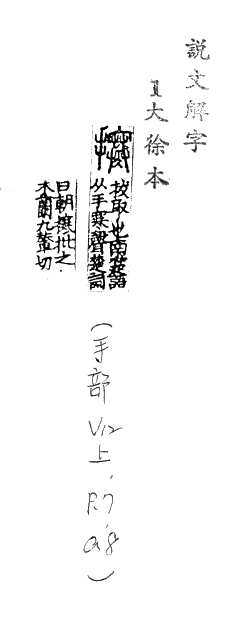 説文解字
1大徐本
㩃
拔取也南楚語
从手寒聲楚詞
曰朝㩃批之
木蘭九輦切
(手部 V12上, P.7, a.8)